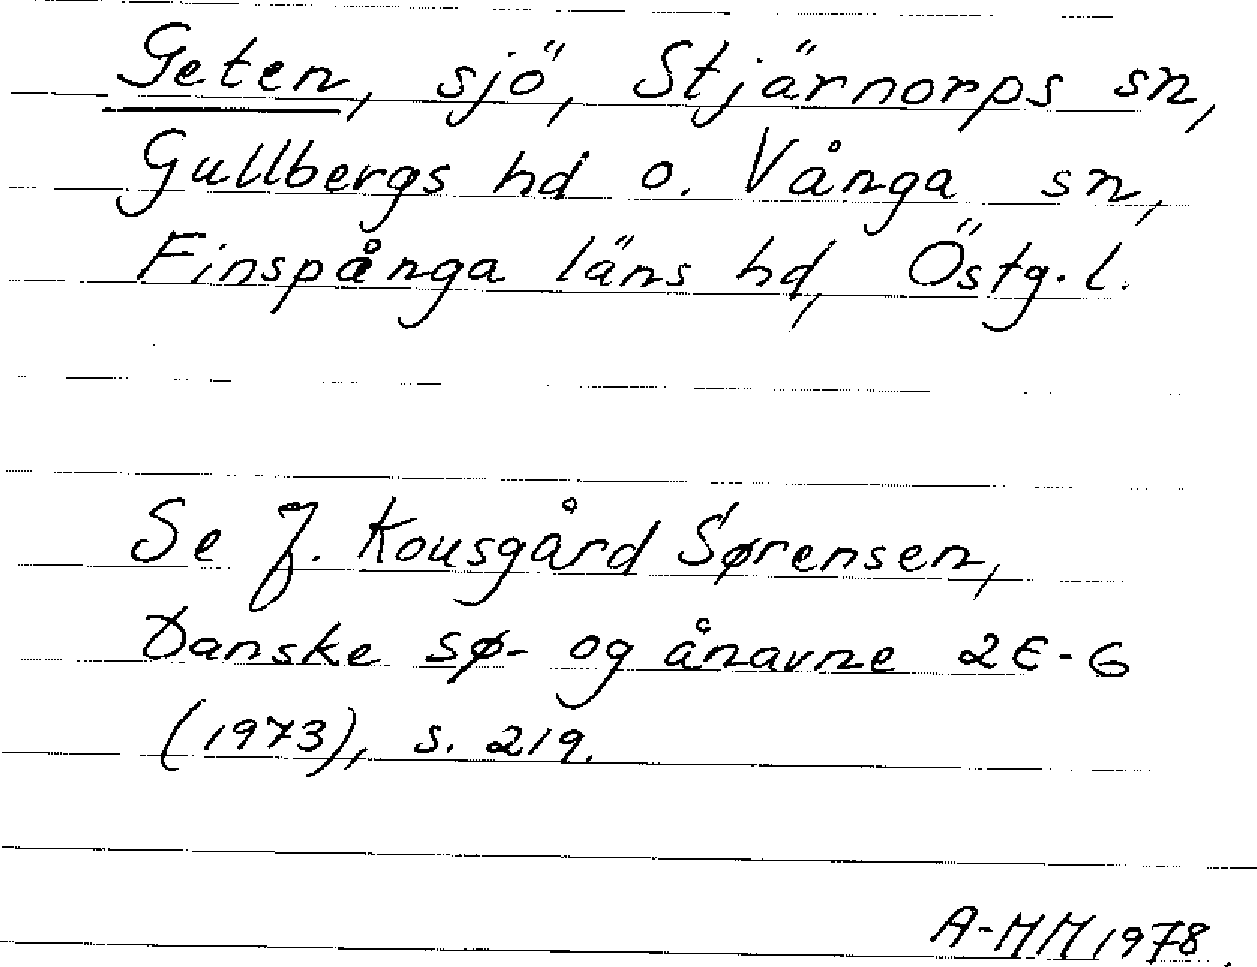 Geten, sjö, Stjärnorps sn,
Gullbergs hd o. Vånga sn,
Finspånga läns hd, Östg. l.
Se J. Kousgård Sørensen,
Danske sø- og ånavne 2 E-G
(1973), s. 219.
A-MM 1978.